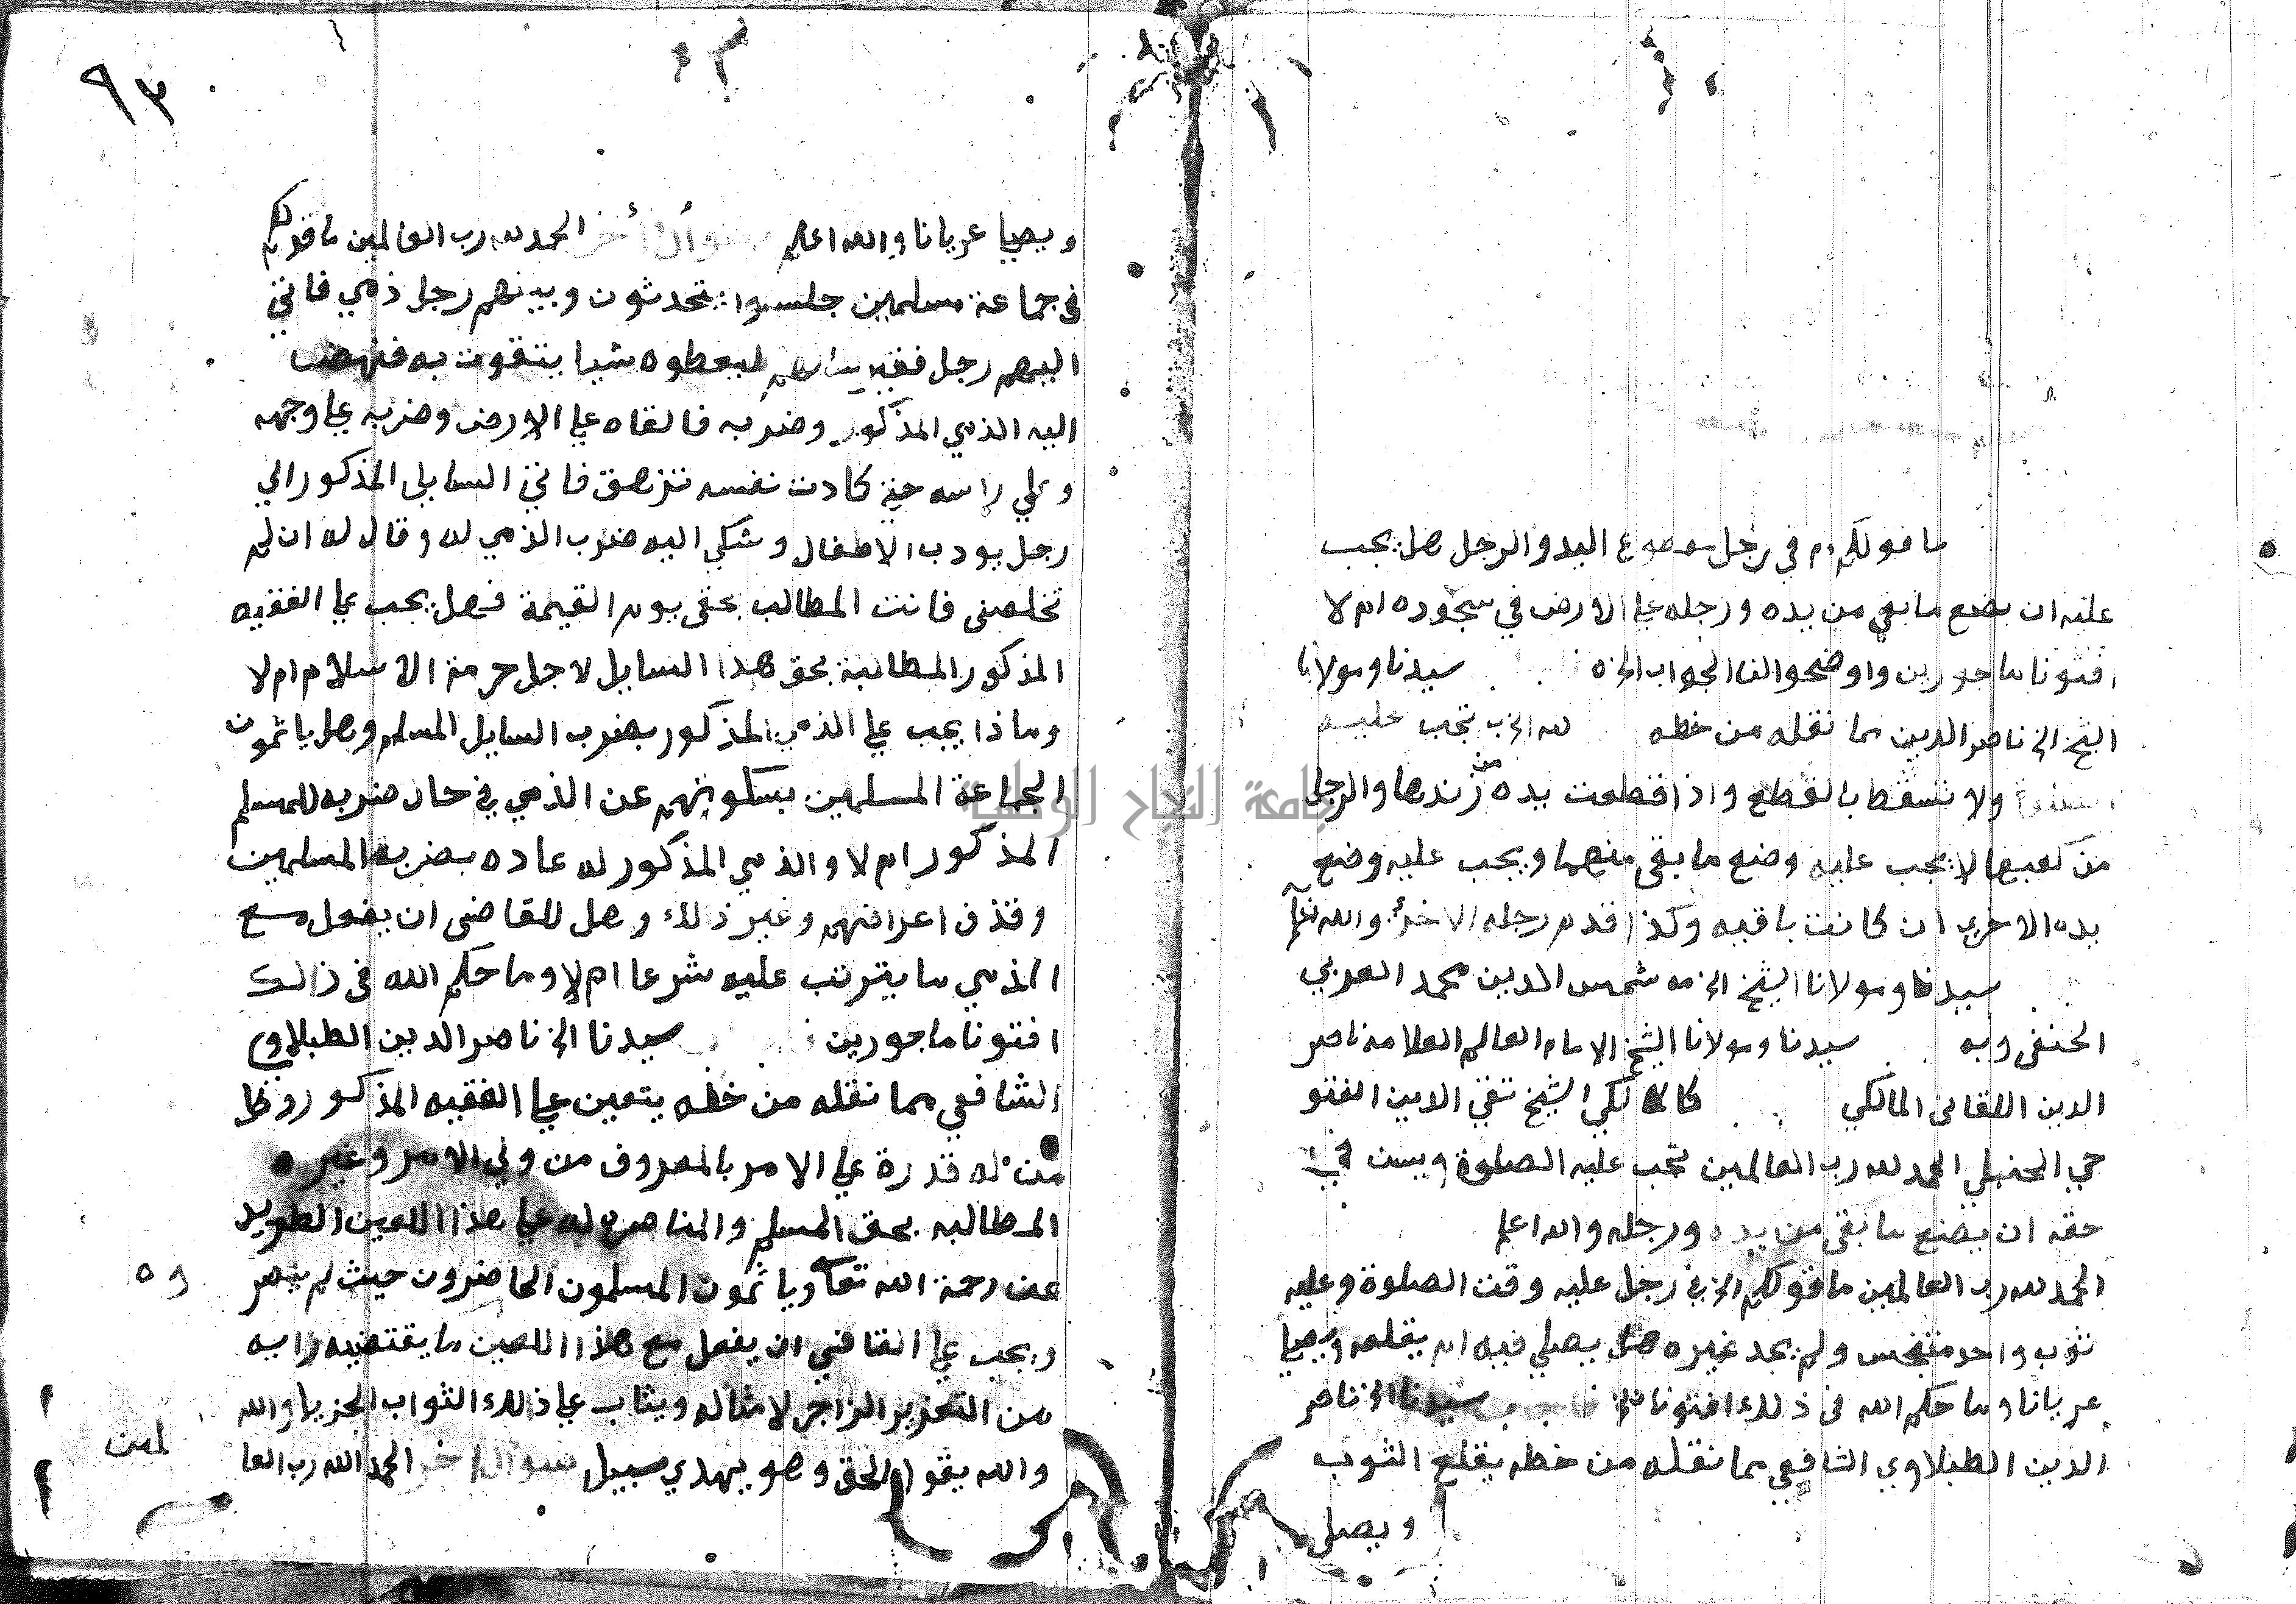 ما قولكم في رجل مقطوع اليد والرجل هل يجب
عليه ان يضع ما بقي من يده ورجله علي الارض في سجوده ام لا
افتونا ماجورين واوضحوا لنا الجواب الخ سيدنا ومولانا
الشيخ الخ ناصر الدين مما نقله من خطه تجب عليه
ولا تسقط بالقطع واذا قطعت يده من زندها والرجل
من كعبها لا يجب عليه وضع ما بقي منهما ويجب عليه وضع
يده الاخري ان كانت باقيه وكذا قدم رجله الاخرى والله تعالى
سيدنا ومولانا الشيخ الخ شمس الدين محمد العربي
الحنفي وبه سيدنا ومولانا الشيخ الامام العالم العلامه ناصر
الدين اللقاني المالكي كالمالكي الشيخ تقي الدين الفتو
حي الحنبلي الحمد لله رب العالمين تجب عليه الصلوة ويسن في
حقه ان يضع ما بقي من يده ورجله والله اعلم
الحمد لله رب العالمين ما قولكم الخ في رجل عليه وقت الصلوة وعليه
ثوب واحد متنجس ولم يجد غيره هل يصلي فيه ام يقلعه ويصلي
عريانا وما حكم الله في ذلك افتونا سيدنا الخ ناصر
الدين الطبلاوي الشافعي مما نقله من خطه يقلع الثوب
ويصلي
٩٣
ويصلي عريانا والله اعلم سوال أخر الحمد لله رب العالمين ما قولكم
في جماعة مسلمين جلسوا يتحدثون وبينهم رجل ذمي فاتي
اليهم رجل فقير ليعطوه شيا يتقوت به فنهض
اليه الذمي المذكور وضربه فالقاه علي الارض وضربه علي وجهه
وعلي راسه حتي كادت نفسه تزهق فاتي السايل المذكور الي
رجل يودب الاطفال وشكي اليه ضرب الذمي له وقال له ان لم
تخلصني فانت المطالب بحقي يوم القيمة فهل يجب علي الفقيه
المذكور المطالبة بحق هذا السايل لاجل حرمة الاسلام ام لا
وماذا يجب علي الذمي المذكور بضرب السايل المسلم وهل ياثمون
الجماعة المسلمين بسكوتهم عن الذمي في حال ضربه للمسلم
المذكور ام لا والذمي المذكور له عاده بضرب المسلمين
وقذف اعراضهم وغير ذلك وهل للقاضي ان يفعل مع
الذمي ما يترتب عليه شرعا ام لا وما حكم الله في ذالك
افتونا ماجورين سيدنا الخ ناصر الدين الطبلاوي
الشافعي مما نقله من خطه يتعين علي الفقيه المذكور
من له قدرة علي الامر بالمعروف من ولي الامر وغيره
المطالبه بحق المسلم والمناصره له علي هذا اللعين الطريد
عن رحمة الله تعالى وياثمون المسلمون الحاضرون حيث لم ينصروه
ويجب علي القاضي ان يفعل مع هذا اللعين ما يقتضيه رايه
من التعزير الزاجر لامثاله ويثاب علي ذلك الثواب الجزيل والله
والله يقول الحق وهو يهدي سبيل سوال اخر الحمد لله رب العا
لمين
جامعة النجاح الوطنية